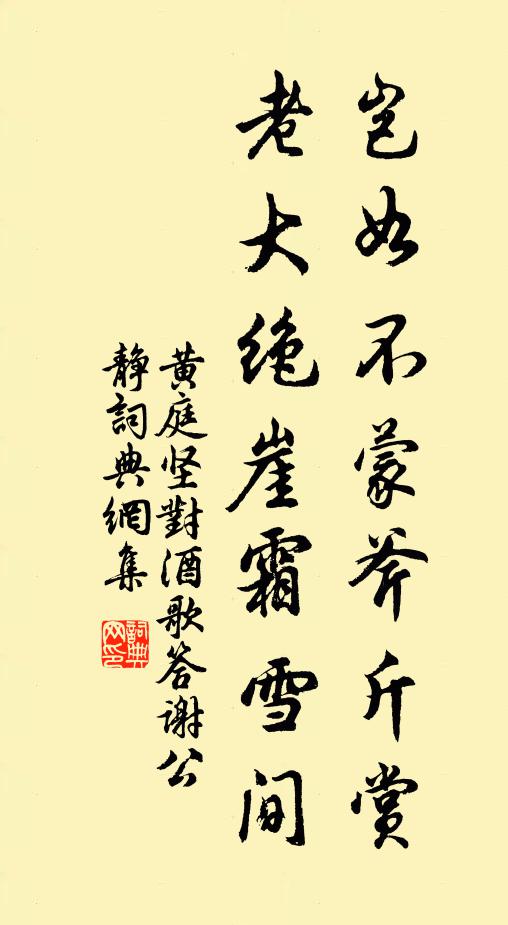 岂如不蒙斧斤赏
老大绝崖霜雪间
黄庭坚對酒歌答谢公
静詞典網集
詞典
网印